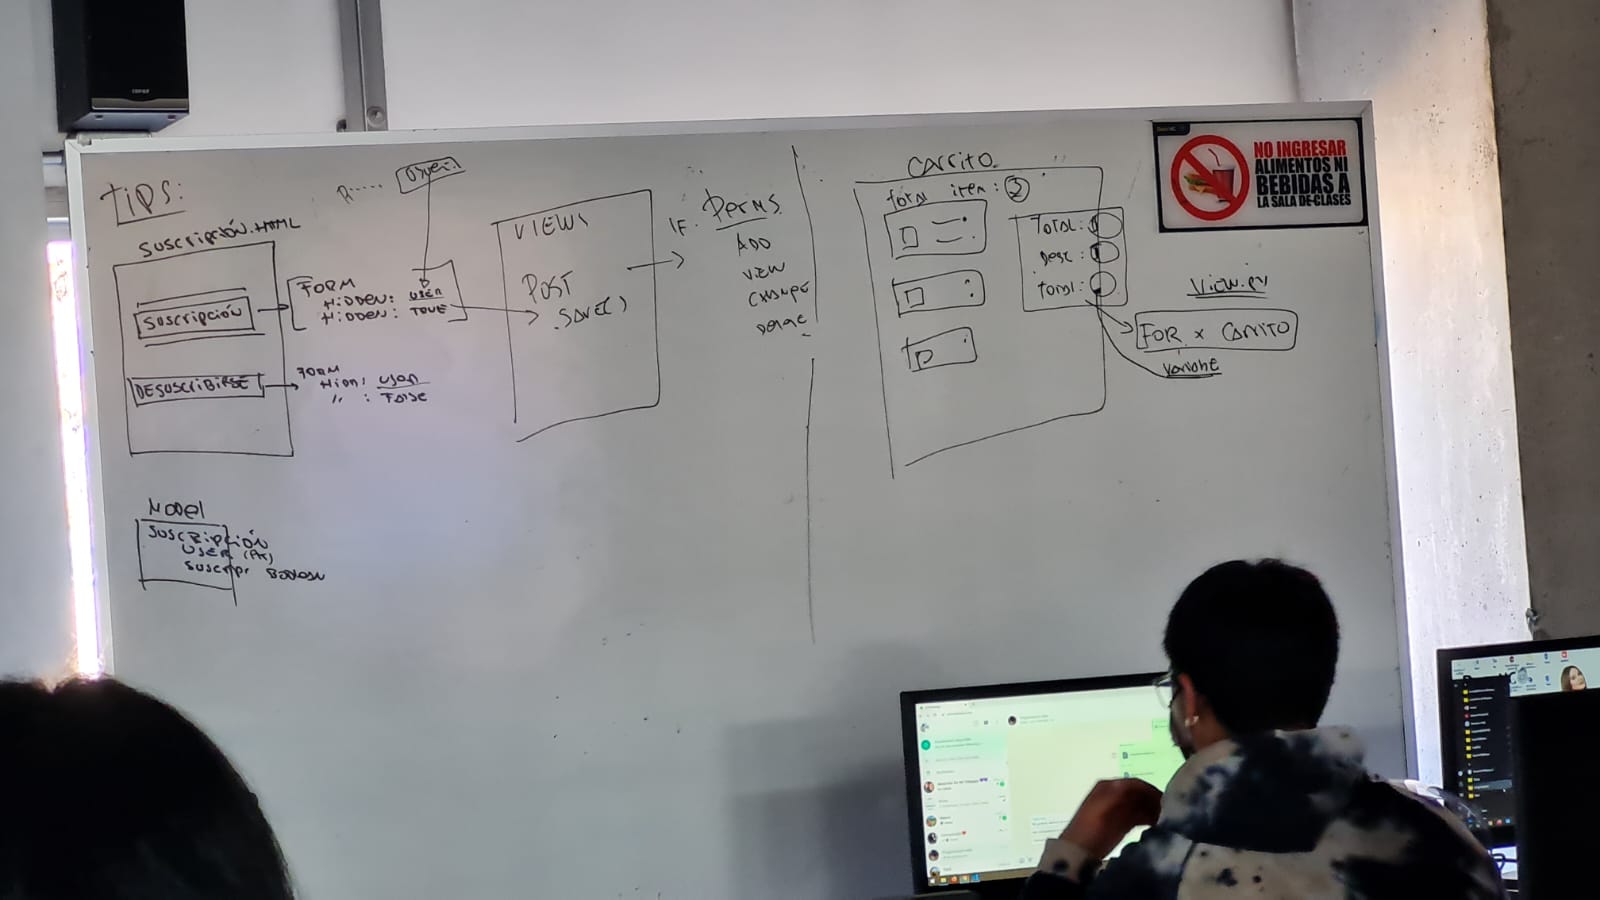 TIPS:
SUSCRIPCIÓN.HTML
SUSCRIPCIÓN
DESUSCRIBIRSE
FORM
HIDDEN: USER
HIDDEN: TRUE
FORM
HIDD: USER
" : FALSE
VIEWS
POST
.SAVE()
IF. PERMS
ADD
VIEW
CHANGE
DELETE
MODEL
SUSCRIPCIÓN
USER (FK)
SUSCRIP: BOOLEAN
CARRITO
form item: 3
TOTAL:
DESC:
TOTAL:
VIEW.PY
FOR x CARRITO
VARIABLE
NO INGRESAR
ALIMENTOS NI
BEBIDAS A
LA SALA DE CLASES